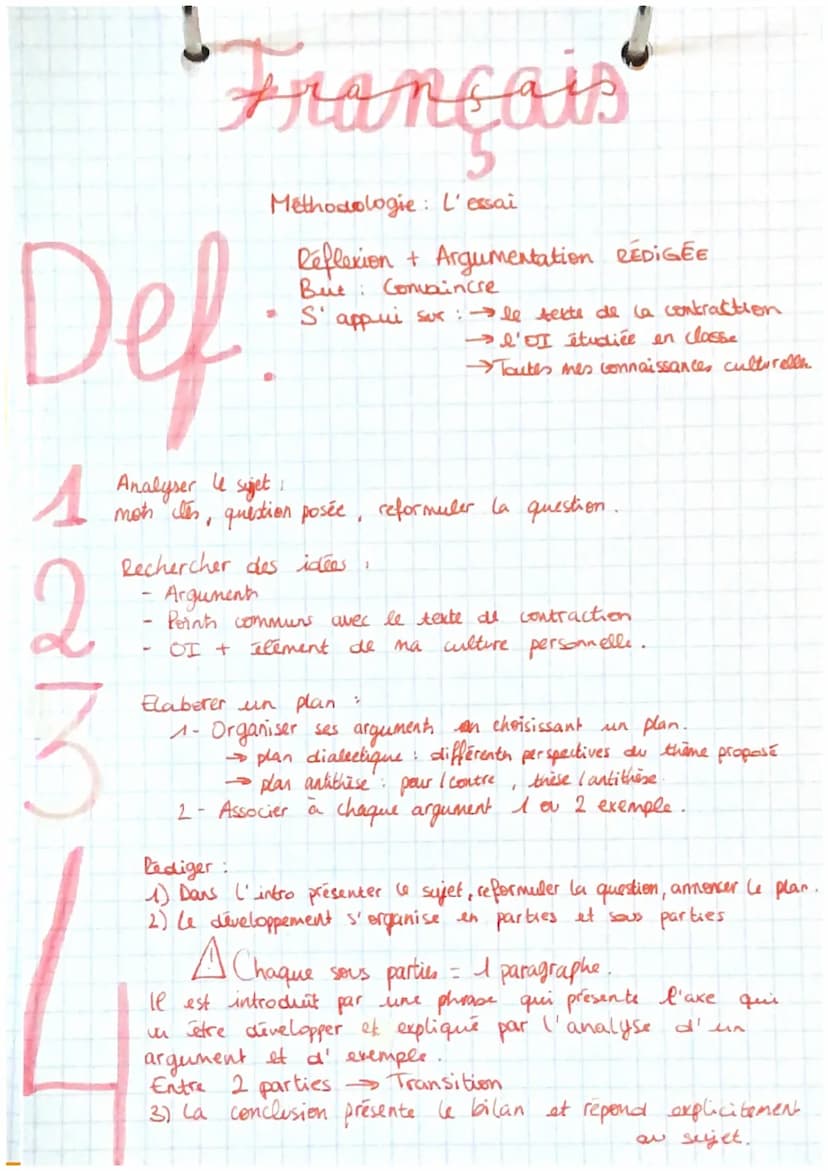 Français
Méthodologie : L'essai
Def.
Réflexion + Argumentation RÉDIGÉE
But : Convaincre
S'appui sur : → le texte de la contraction
→ l'OI étudiée en classe
→ Toutes mes connaissances culturelles
1
Analyser le sujet :
mots clés, question posée, reformuler la question.
2
Rechercher des idées :
- Arguments
- Points communs avec le texte de contraction
- OI + élément de ma culture personnelle.
3
Elaborer un plan :
1- Organiser ses arguments en choisissant un plan.
→ plan dialectique : différents perspectives du thème proposé
→ plan antithèse : pour/contre, thèse/antithèse.
2- Associer à chaque argument 1 ou 2 exemple.
4
Rédiger :
1) Dans l'intro présenter le sujet, reformuler la question, annoncer le plan.
2) Le développement s'organise en parties et sous parties
⚠ Chaque sous parties = 1 paragraphe.
Il est introduit par une phrase qui présente l'axe qui
va être développer et expliqué par l'analyse d'un
argument et d'exemple.
Entre 2 parties → Transition
3) La conclusion présente le bilan et répond explicitement
au sujet.